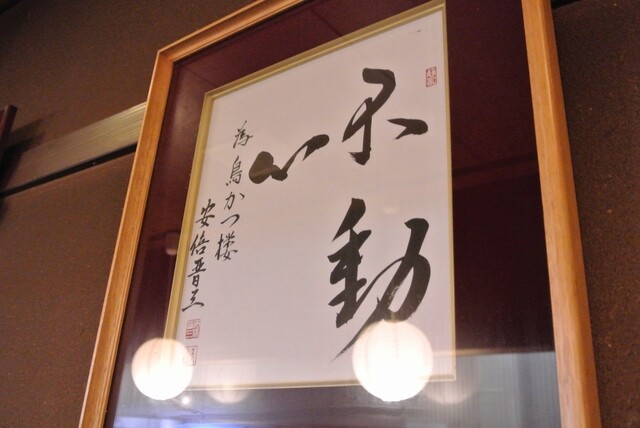 不動
心
為 鳥かつ楼
安倍晋三